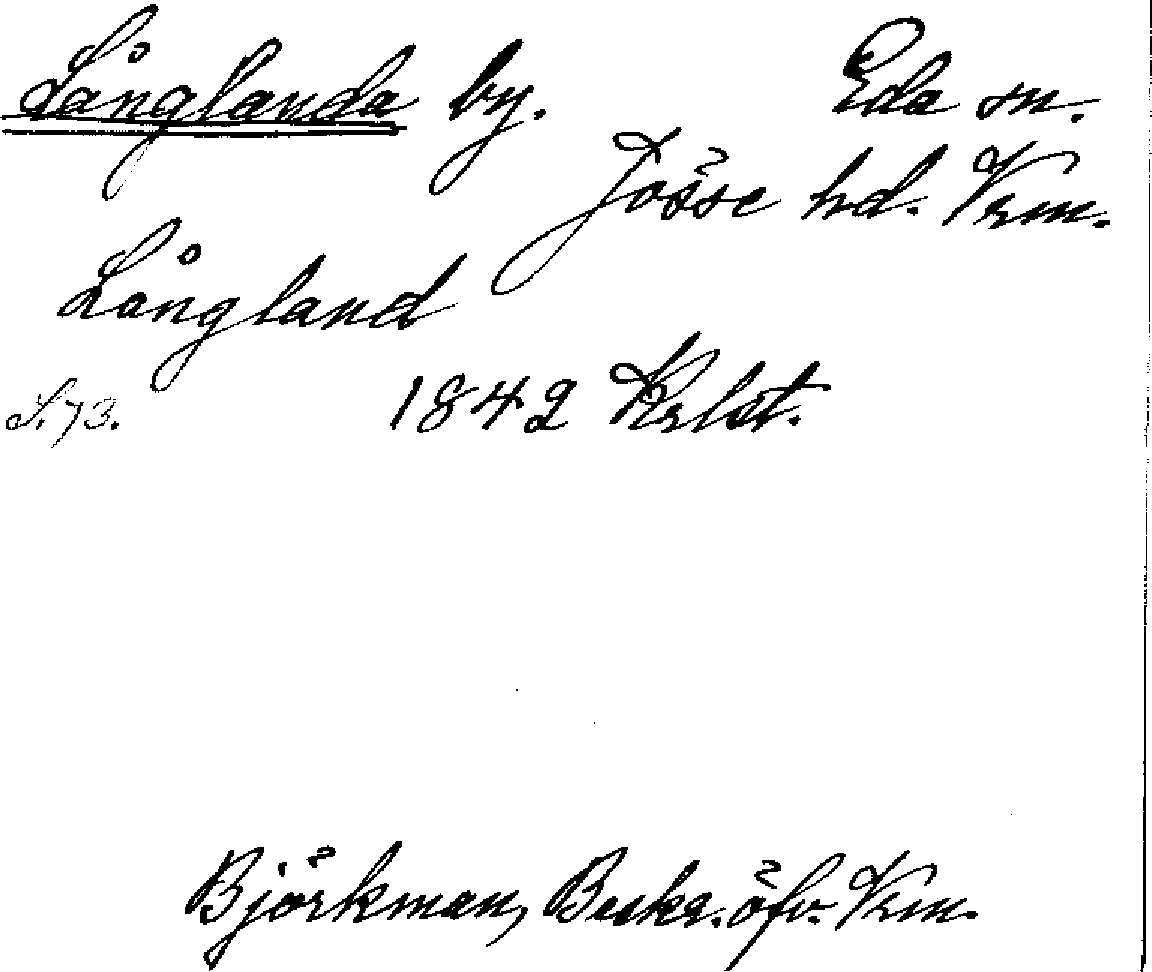 Långlanda by. Eda sn.
Jösse hd. Vrm.
Långland
S. 73. 1842 Krlst.
Björkman, Beskr. öfv. Vrm.